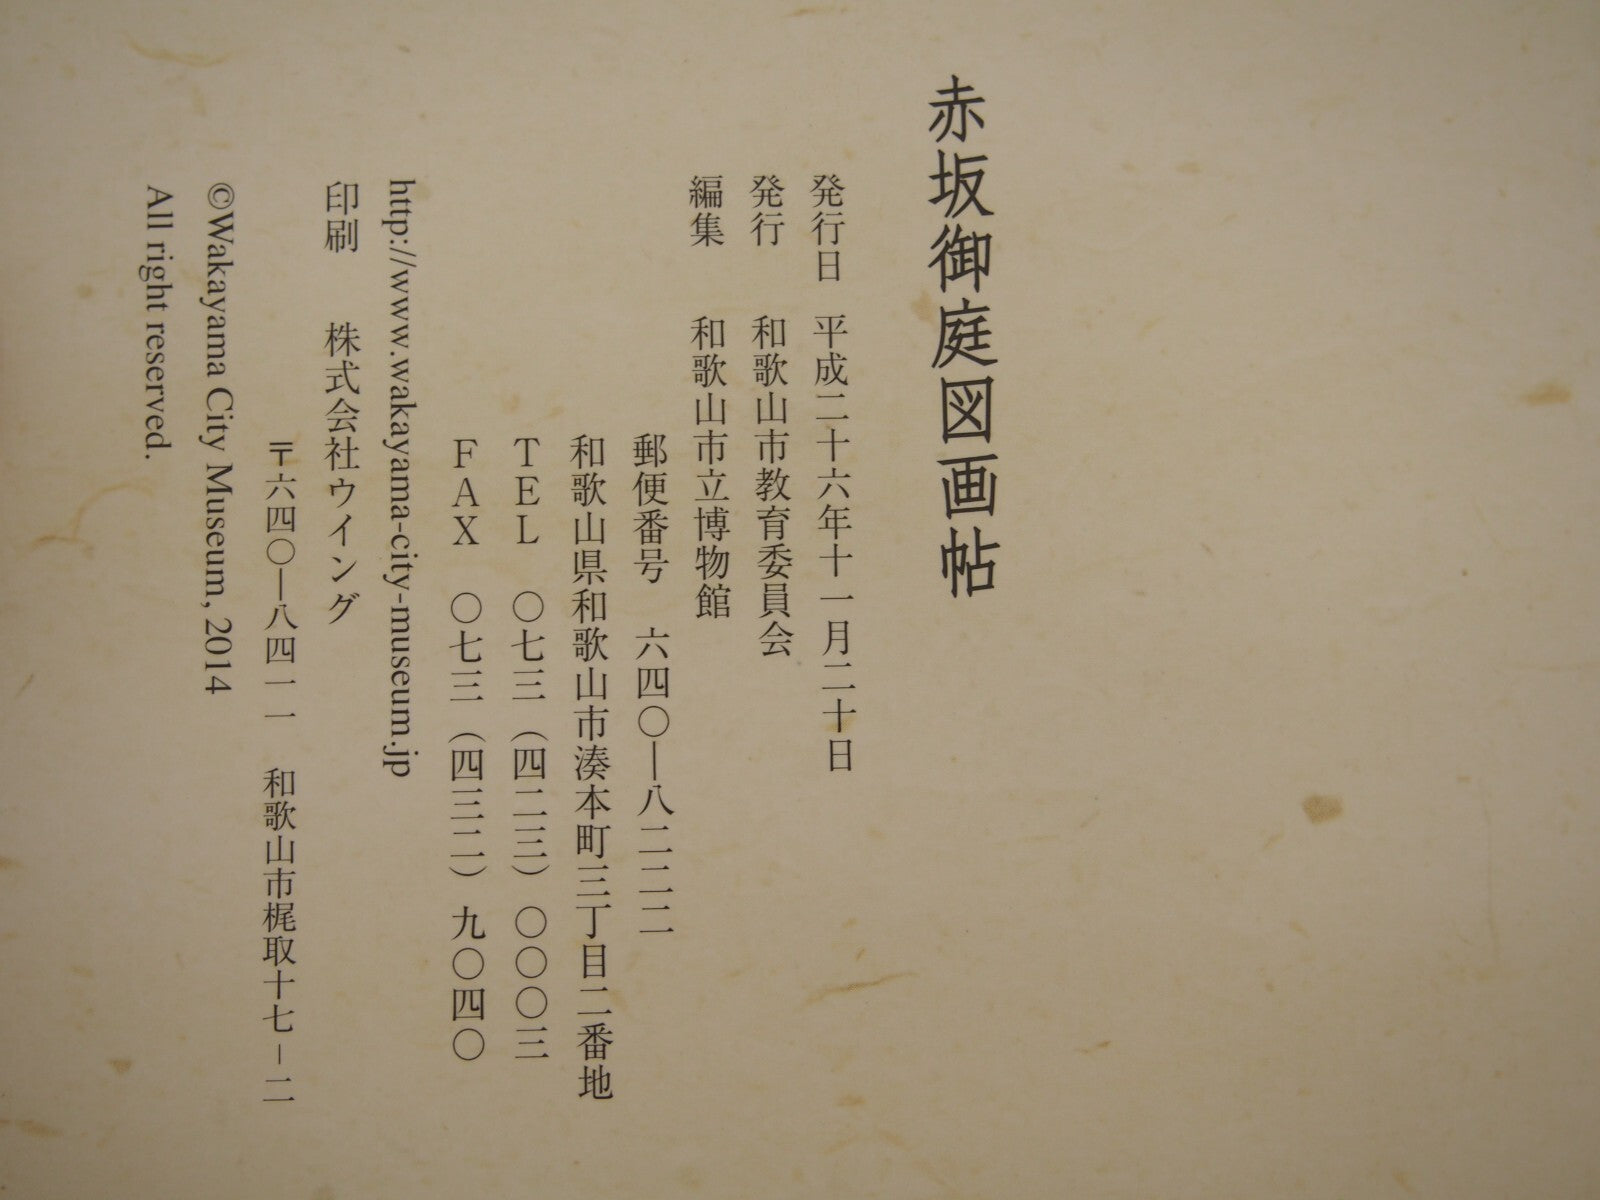 赤坂御庭図画帖
発行日 平成二十六年十一月二十日
発行 和歌山市教育委員会
編集 和歌山市立博物館
郵便番号 六四〇―八二二二
和歌山県和歌山市湊本町三丁目二番地
TEL 〇七三（四二三）〇〇〇三
FAX 〇七三（四三二）九〇四〇
http://www.wakayama-city-museum.jp
印刷 株式会社ウイング
〒六四〇―八四一一 和歌山市梶取十七－二
©Wakayama City Museum, 2014
All right reserved.